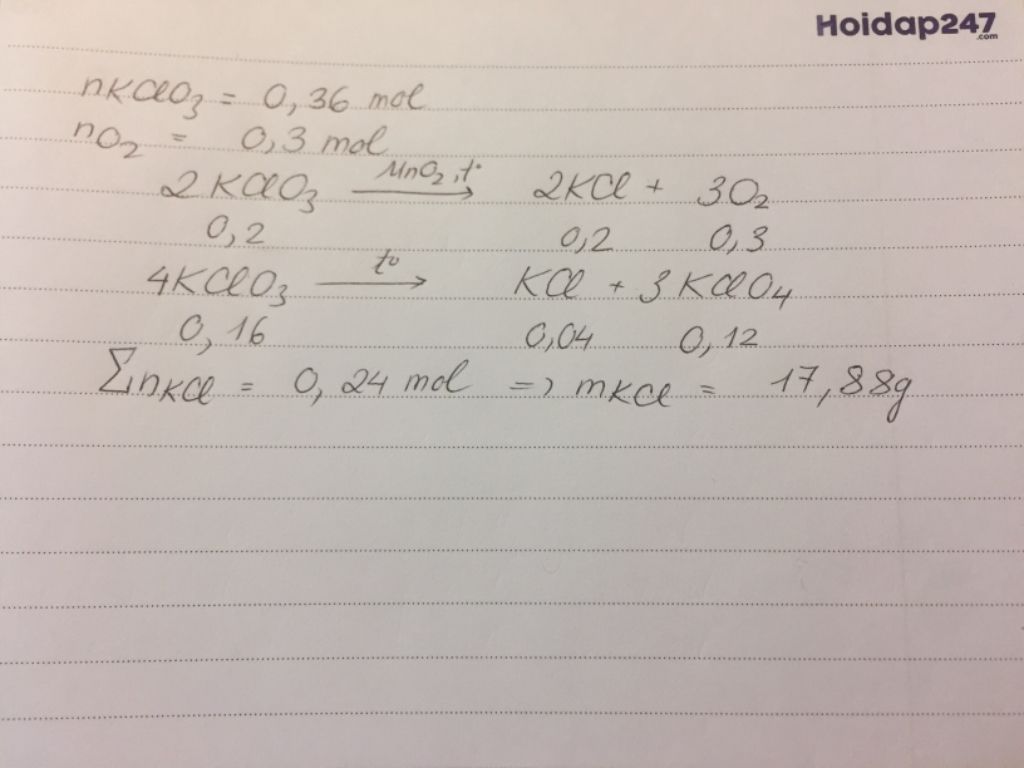 Hoidap247
.com
nKClO₃ = 0,36 mol
nO₂ = 0,3 mol
2KClO₃ —MnO₂, t°→ 2KCl + 3O₂
0,2 0,2 0,3
4KClO₃ —t°→ KCl + 3KClO₄
0,16 0,04 0,12
∑nKCl = 0,24 mol => mKCl = 17,88g